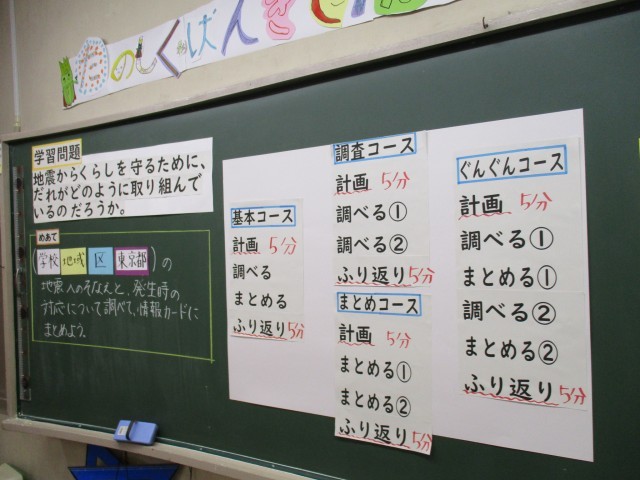 学習問題
地震からくらしを守るために、
だれがどのように取り組んで
いるのだろうか。
めあて
(学校 地域 区 東京都)の
地震へのそなえと、発生時の
対応について調べて、情報カードに
まとめよう。
基本コース
計画 5分
調べる
まとめる
ふり返り 5分
調査コース
計画 5分
調べる①
調べる②
ふり返り 5分
まとめコース
計画 5分
まとめる①
まとめる②
ふり返り 5分
ぐんぐんコース
計画 5分
調べる①
まとめる①
調べる②
まとめる②
ふり返り 5分